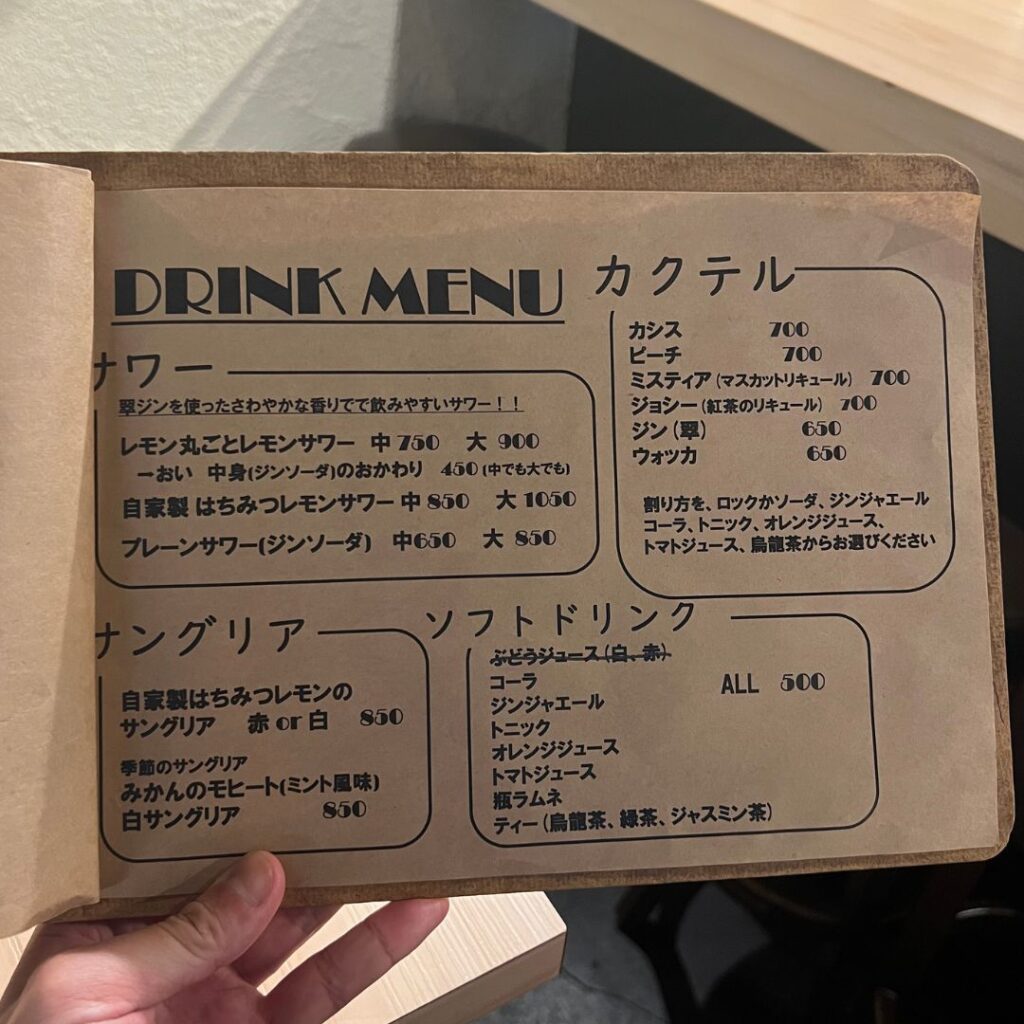 DRINK MENU
サワー
翠ジンを使ったさわやかな香りでで飲みやすいサワー！！
レモン丸ごとレモンサワー 中 750 大 900
→おい 中身(ジンソーダ)のおかわり 450 (中でも大でも)
自家製 はちみつレモンサワー 中 850 大 1050
プレーンサワー(ジンソーダ) 中650 大 850
カクテル
カシス 700
ピーチ 700
ミスティア（マスカットリキュール） 700
ジョシー（紅茶のリキュール） 700
ジン（翠） 650
ウォツカ 650
割り方を、ロックかソーダ、ジンジャエール
コーラ、トニック、オレンジジュース、
トマトジュース、烏龍茶からお選びください
サングリア
自家製はちみつレモンの
サングリア 赤 or 白 850
季節のサングリア
みかんのモヒート(ミント風味)
白サングリア 850
ソフトドリンク
ぶどうジュース（白、赤）
コーラ ALL 500
ジンジャエール
トニック
オレンジジュース
トマトジュース
瓶ラムネ
ティー（烏龍茶、緑茶、ジャスミン茶）